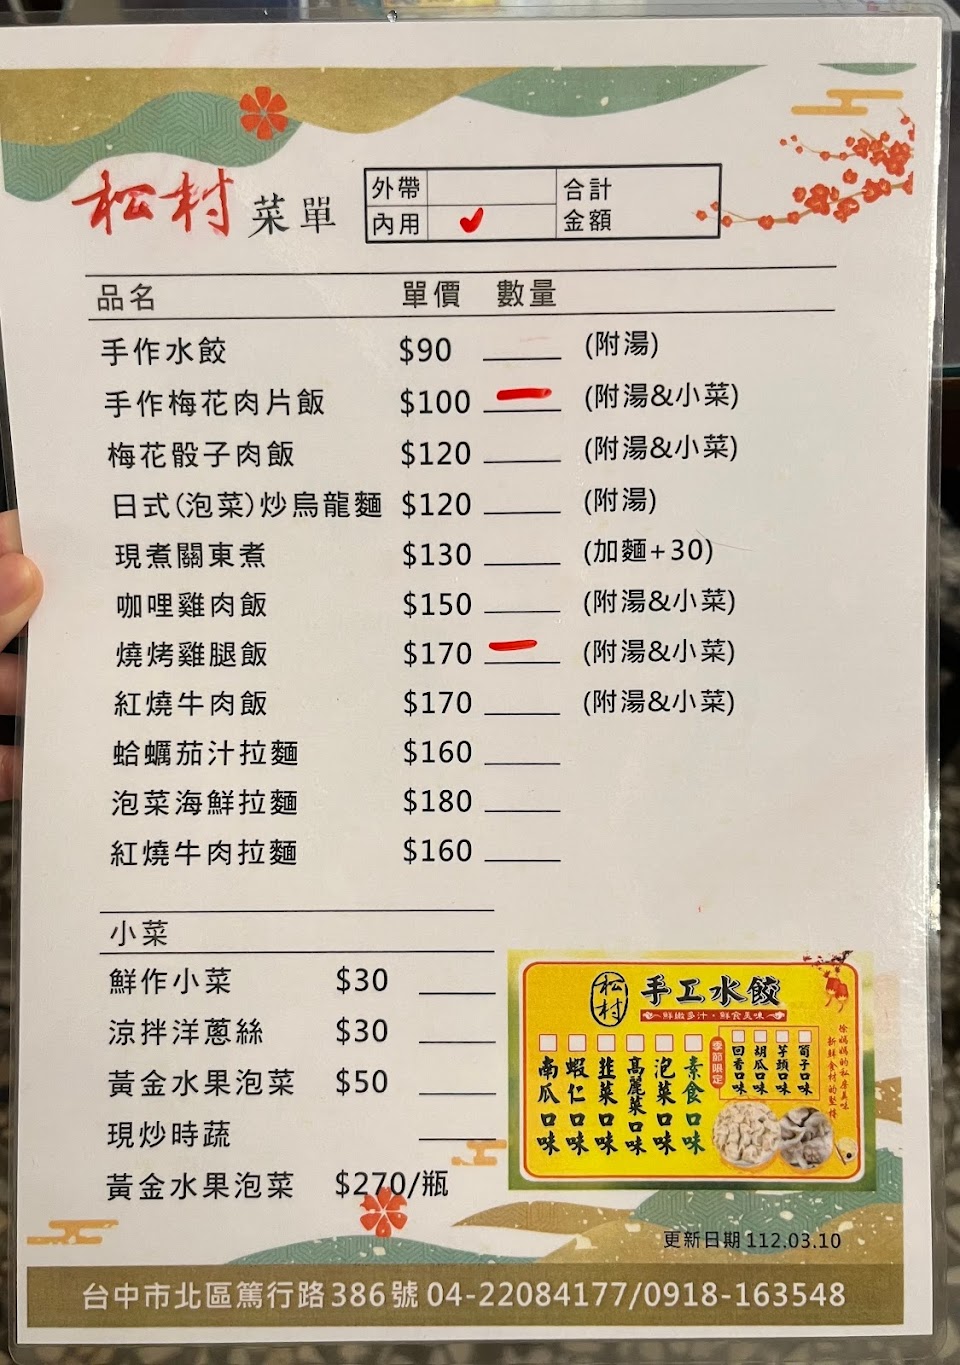 松村 菜單
外帶
內用 ✓
合計
金額
品名 單價 數量
手作水餃 $90 (附湯)
手作梅花肉片飯 $100 一 (附湯&小菜)
梅花骰子肉飯 $120 (附湯&小菜)
日式(泡菜)炒烏龍麵 $120 (附湯)
現煮關東煮 $130 (加麵+30)
咖哩雞肉飯 $150 (附湯&小菜)
燒烤雞腿飯 $170 一 (附湯&小菜)
紅燒牛肉飯 $170 (附湯&小菜)
蛤蠣茄汁拉麵 $160
泡菜海鮮拉麵 $180
紅燒牛肉拉麵 $160
小菜
鮮作小菜 $30
涼拌洋蔥絲 $30
黃金水果泡菜 $50
現炒時蔬
黃金水果泡菜 $270/瓶
松村 手工水餃
鮮嫩多汁・鮮食美味
南瓜口味
蝦仁口味
韭菜口味
高麗菜口味
泡菜口味
素食口味
季節限定
回香口味
胡瓜口味
芋頭口味
筍子口味
徐媽媽的私房美味
新鮮食材的堅持
更新日期112.03.10
台中市北區篤行路386號 04-22084177/0918-163548